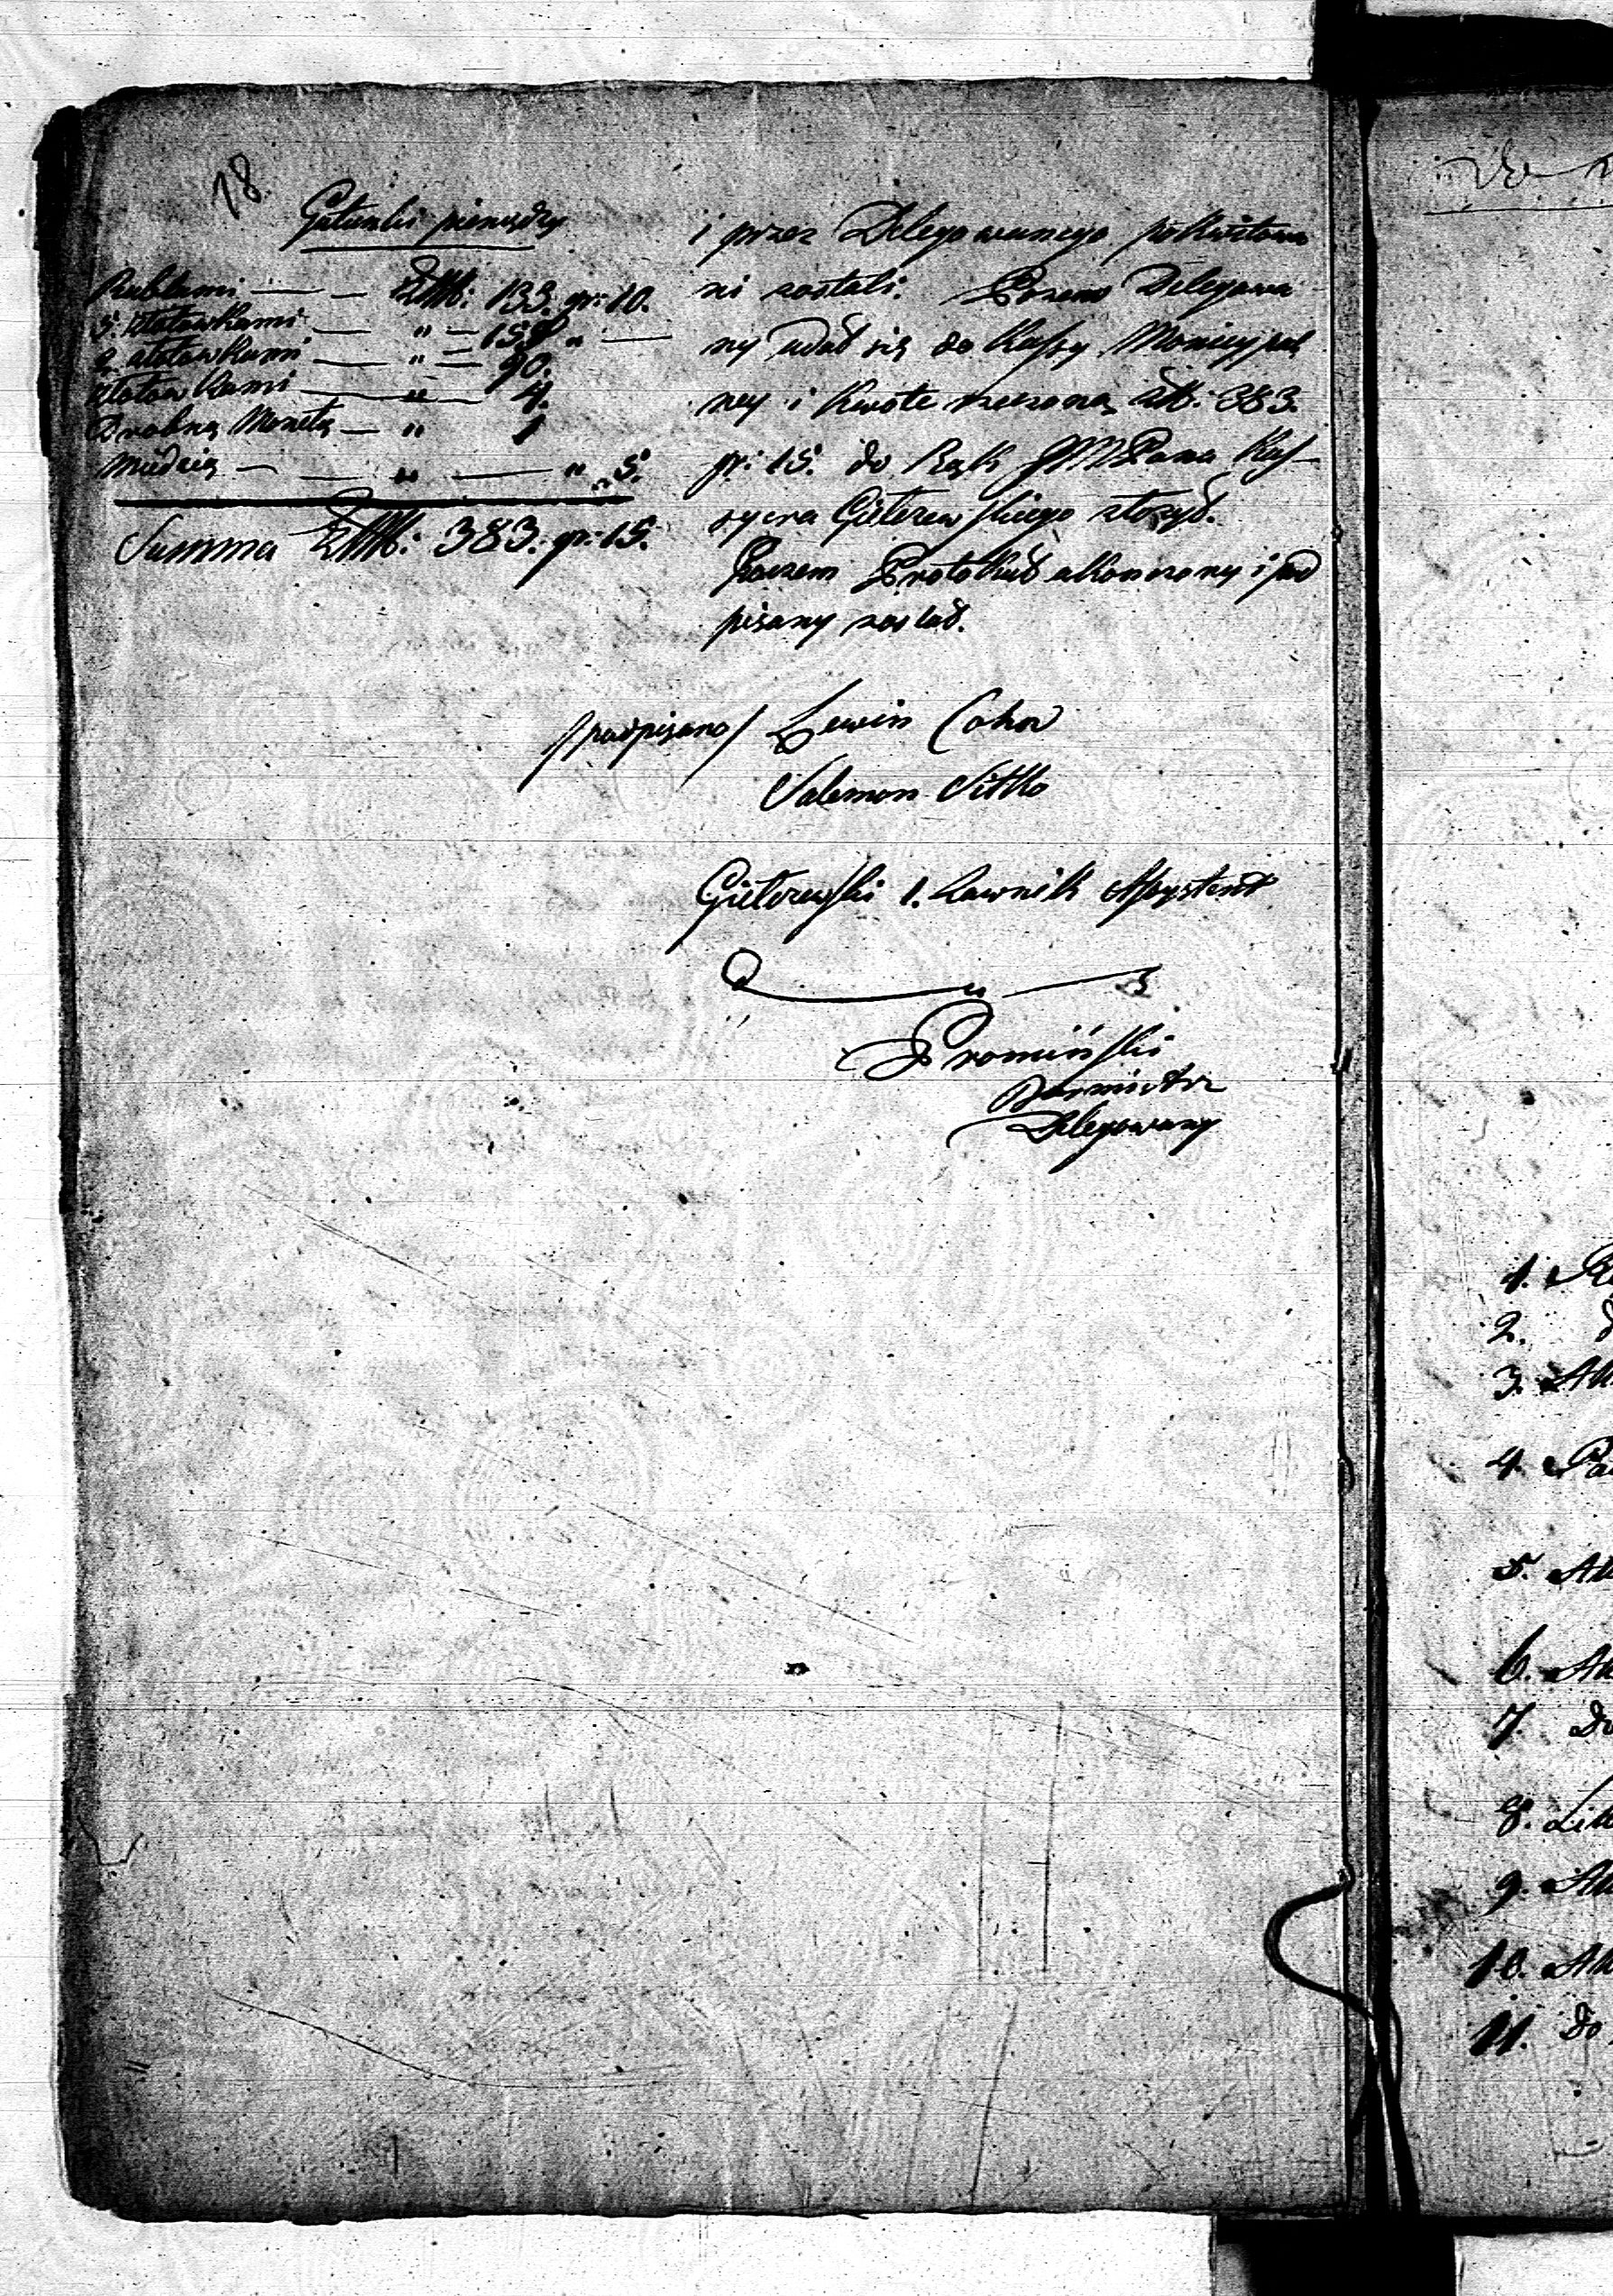 18.
Gatunki pieniędzy
Rublami — — Złł: 133. gr: 10.
5. złotowkami — " — 155 " —
2. złotowkami — " — 90.
złotowkami — " — 4.
Drobną Monetą — " 1
Miedzią — — " — " 5.
Summa Złł: 383. gr: 15.
i przez Delegowanego pokwitowa
ni zostali. Poczem Delegowa
ny udał się do Kassy Municypal
ney i kwotę rzeczoną Złł: 383.
gr: 15. do Rąk JMPana Kas-
syera Gizewskiego złożył.
Poczem Protokuł ukończony i pod
pisany został.
/podpisano/ Lewin Cohn
Salomon Sittko
1. Ławnik Assystent
Promiński
Burmistrz
Delegowany
1.
2.
3.
4.
5.
6.
7. Do
8.
9.
10.
11. do